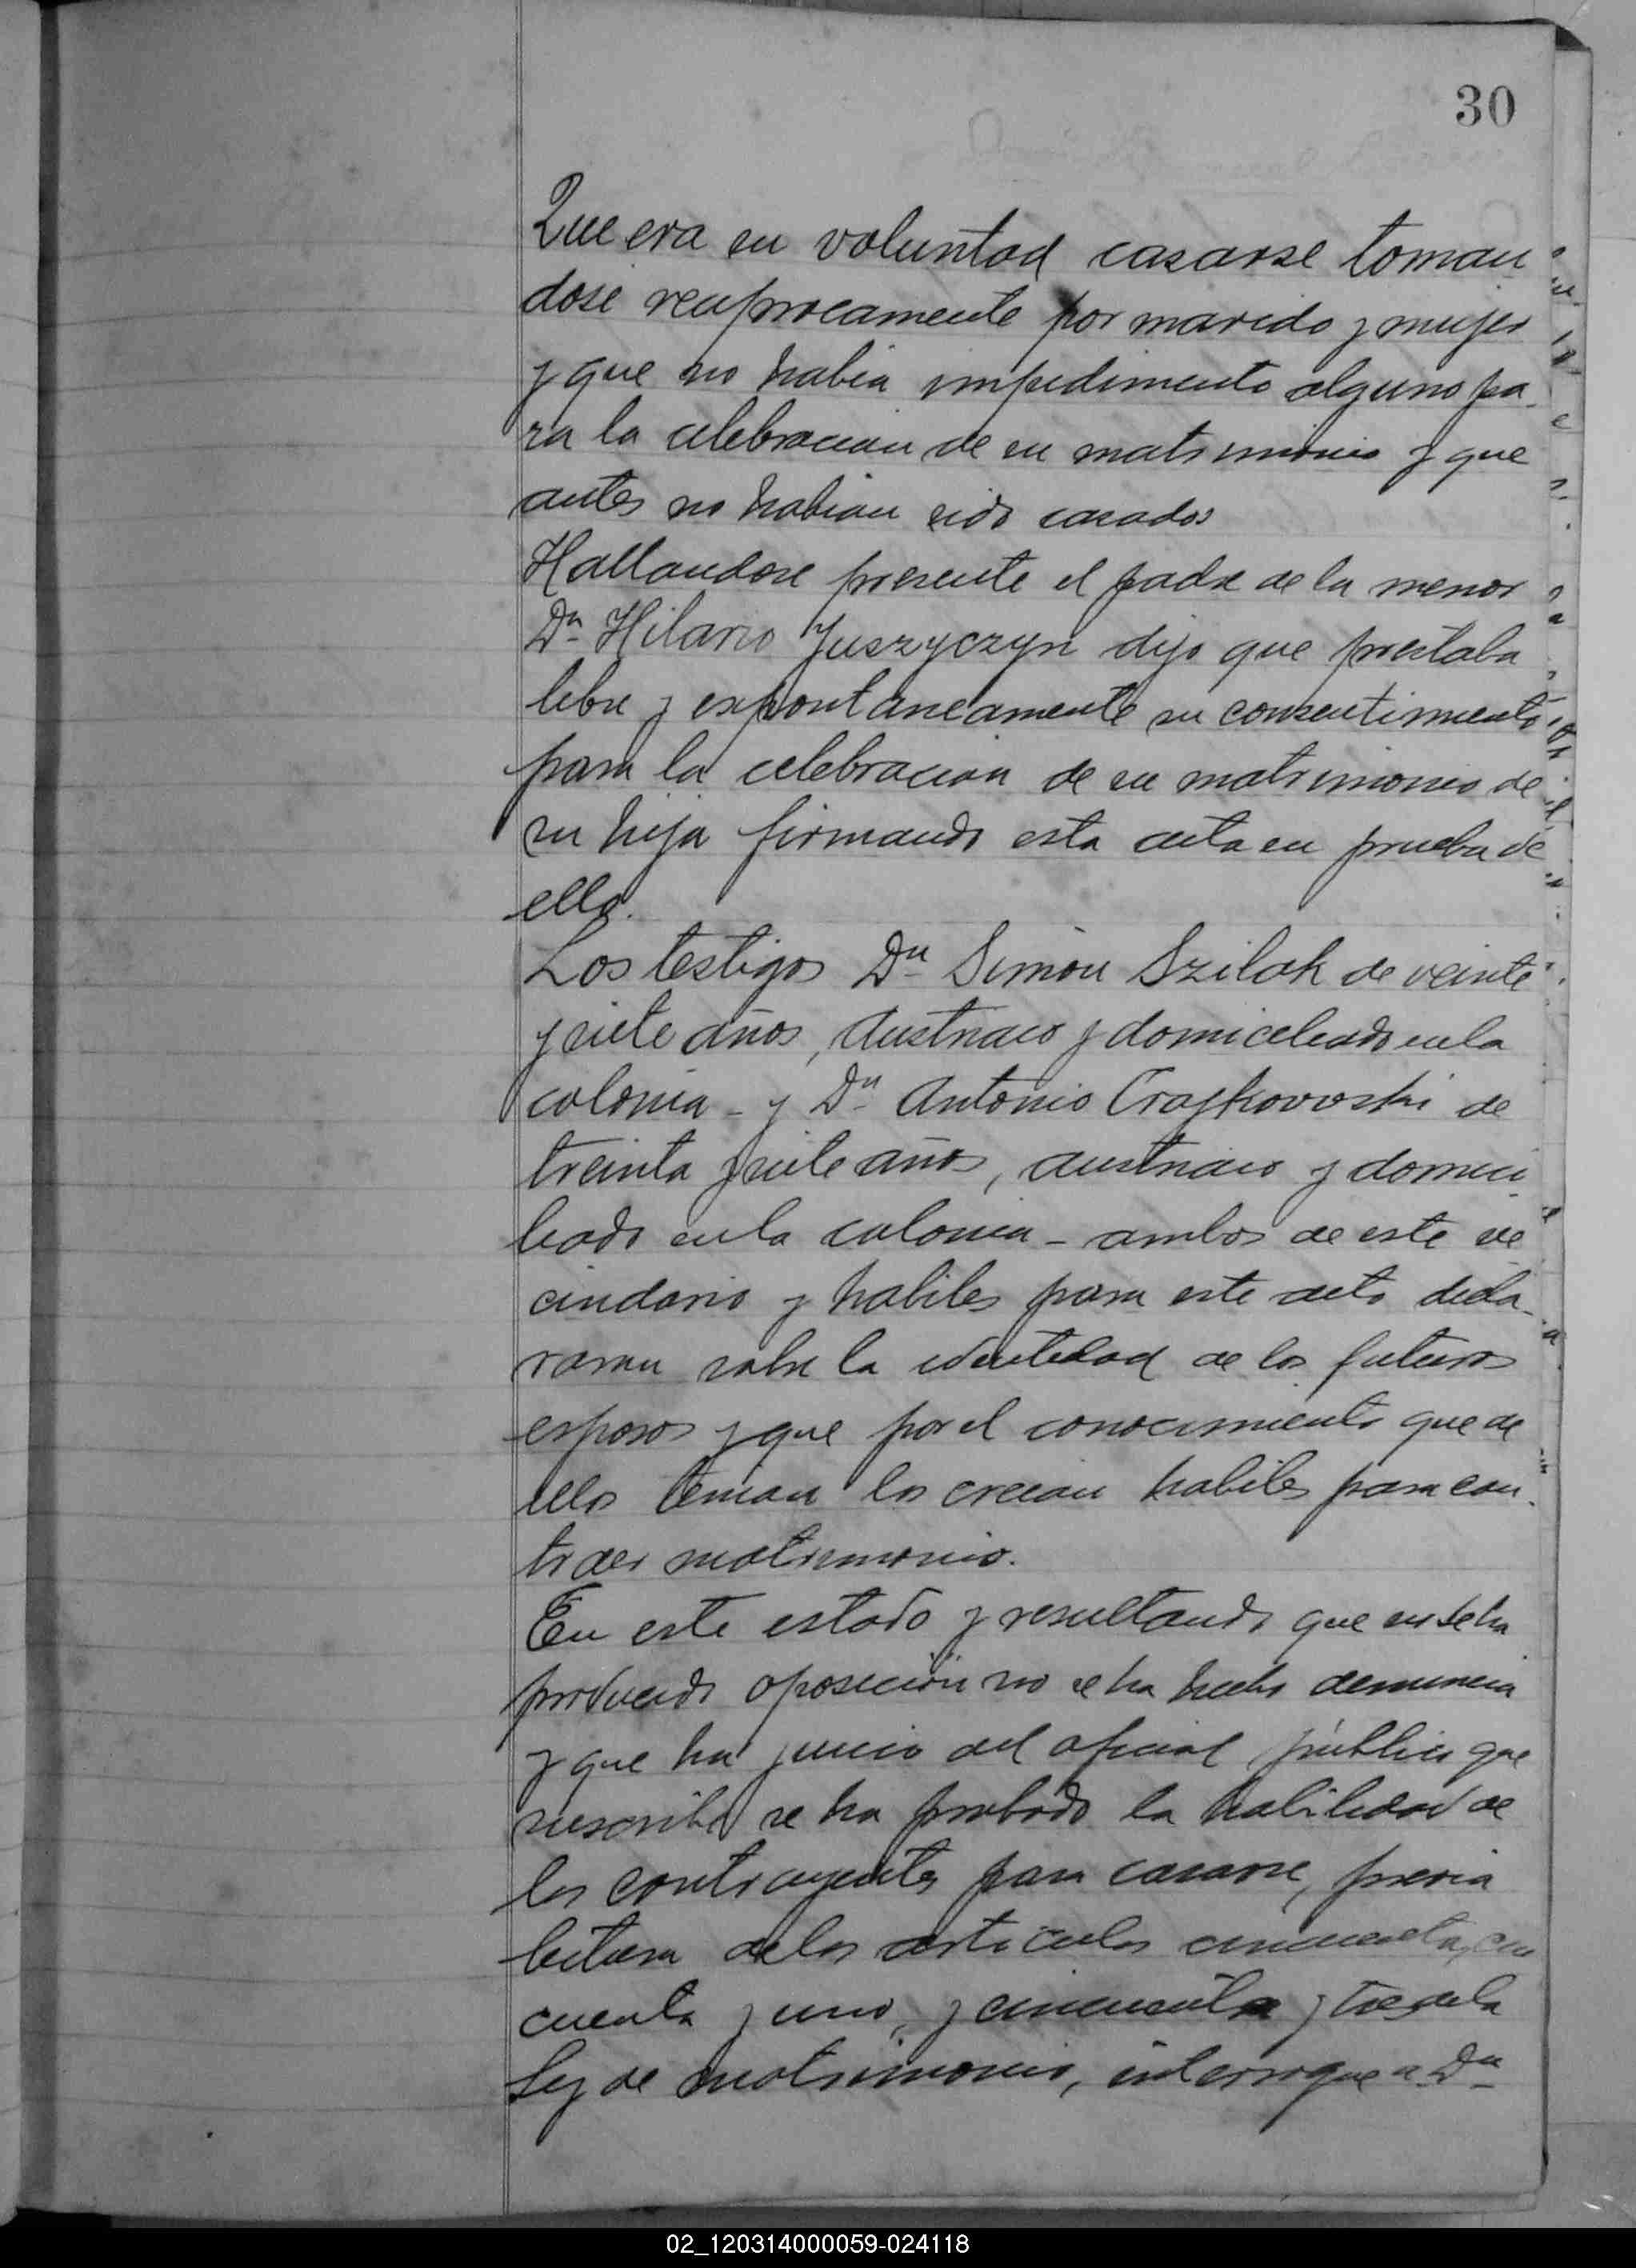 30
Que era su voluntad casarse toman
dose reciprocamente por marido y mujer
y que no habia impedimento alguno pa-
ra la celebracion de su matrimonio y que
antes no habian sido casados
Hallandose presente el padre de la menor
Dn Hilario Juszyczyn dijo que prestaba
libre y espontaneamente su consentimiento
para la celebracion de su matrimonio de
su hija firmando esta acta en prueba de
ello.
Los testigos Dn Simón Szilak de veinte
y siete años, Austriaco y domiciliado en la
colonia - y Dn Antonio Crajkowski de
treinta y siete años, austriaco y domici
liado en la colonia - ambos de este ve
cindario y habiles para este acto decla-
raran sobre la identidad de los futuros
esposos y que por el conocimiento que de
ellos tenian los creian habiles para con-
traer matrimonio.
En este estado y resultando que no se ha
producido oposición no se ha hecho denuncia
y que ha juicio del oficial público que
suscribe se ha probado la habilidad de
los contrayentes para casarse, previa
lectura de los articulos cincuenta, cin
cuenta y uno, y cincuenta y tres de la
Ley de matrimonio, interrogue a Dn
02_120314000059-024118